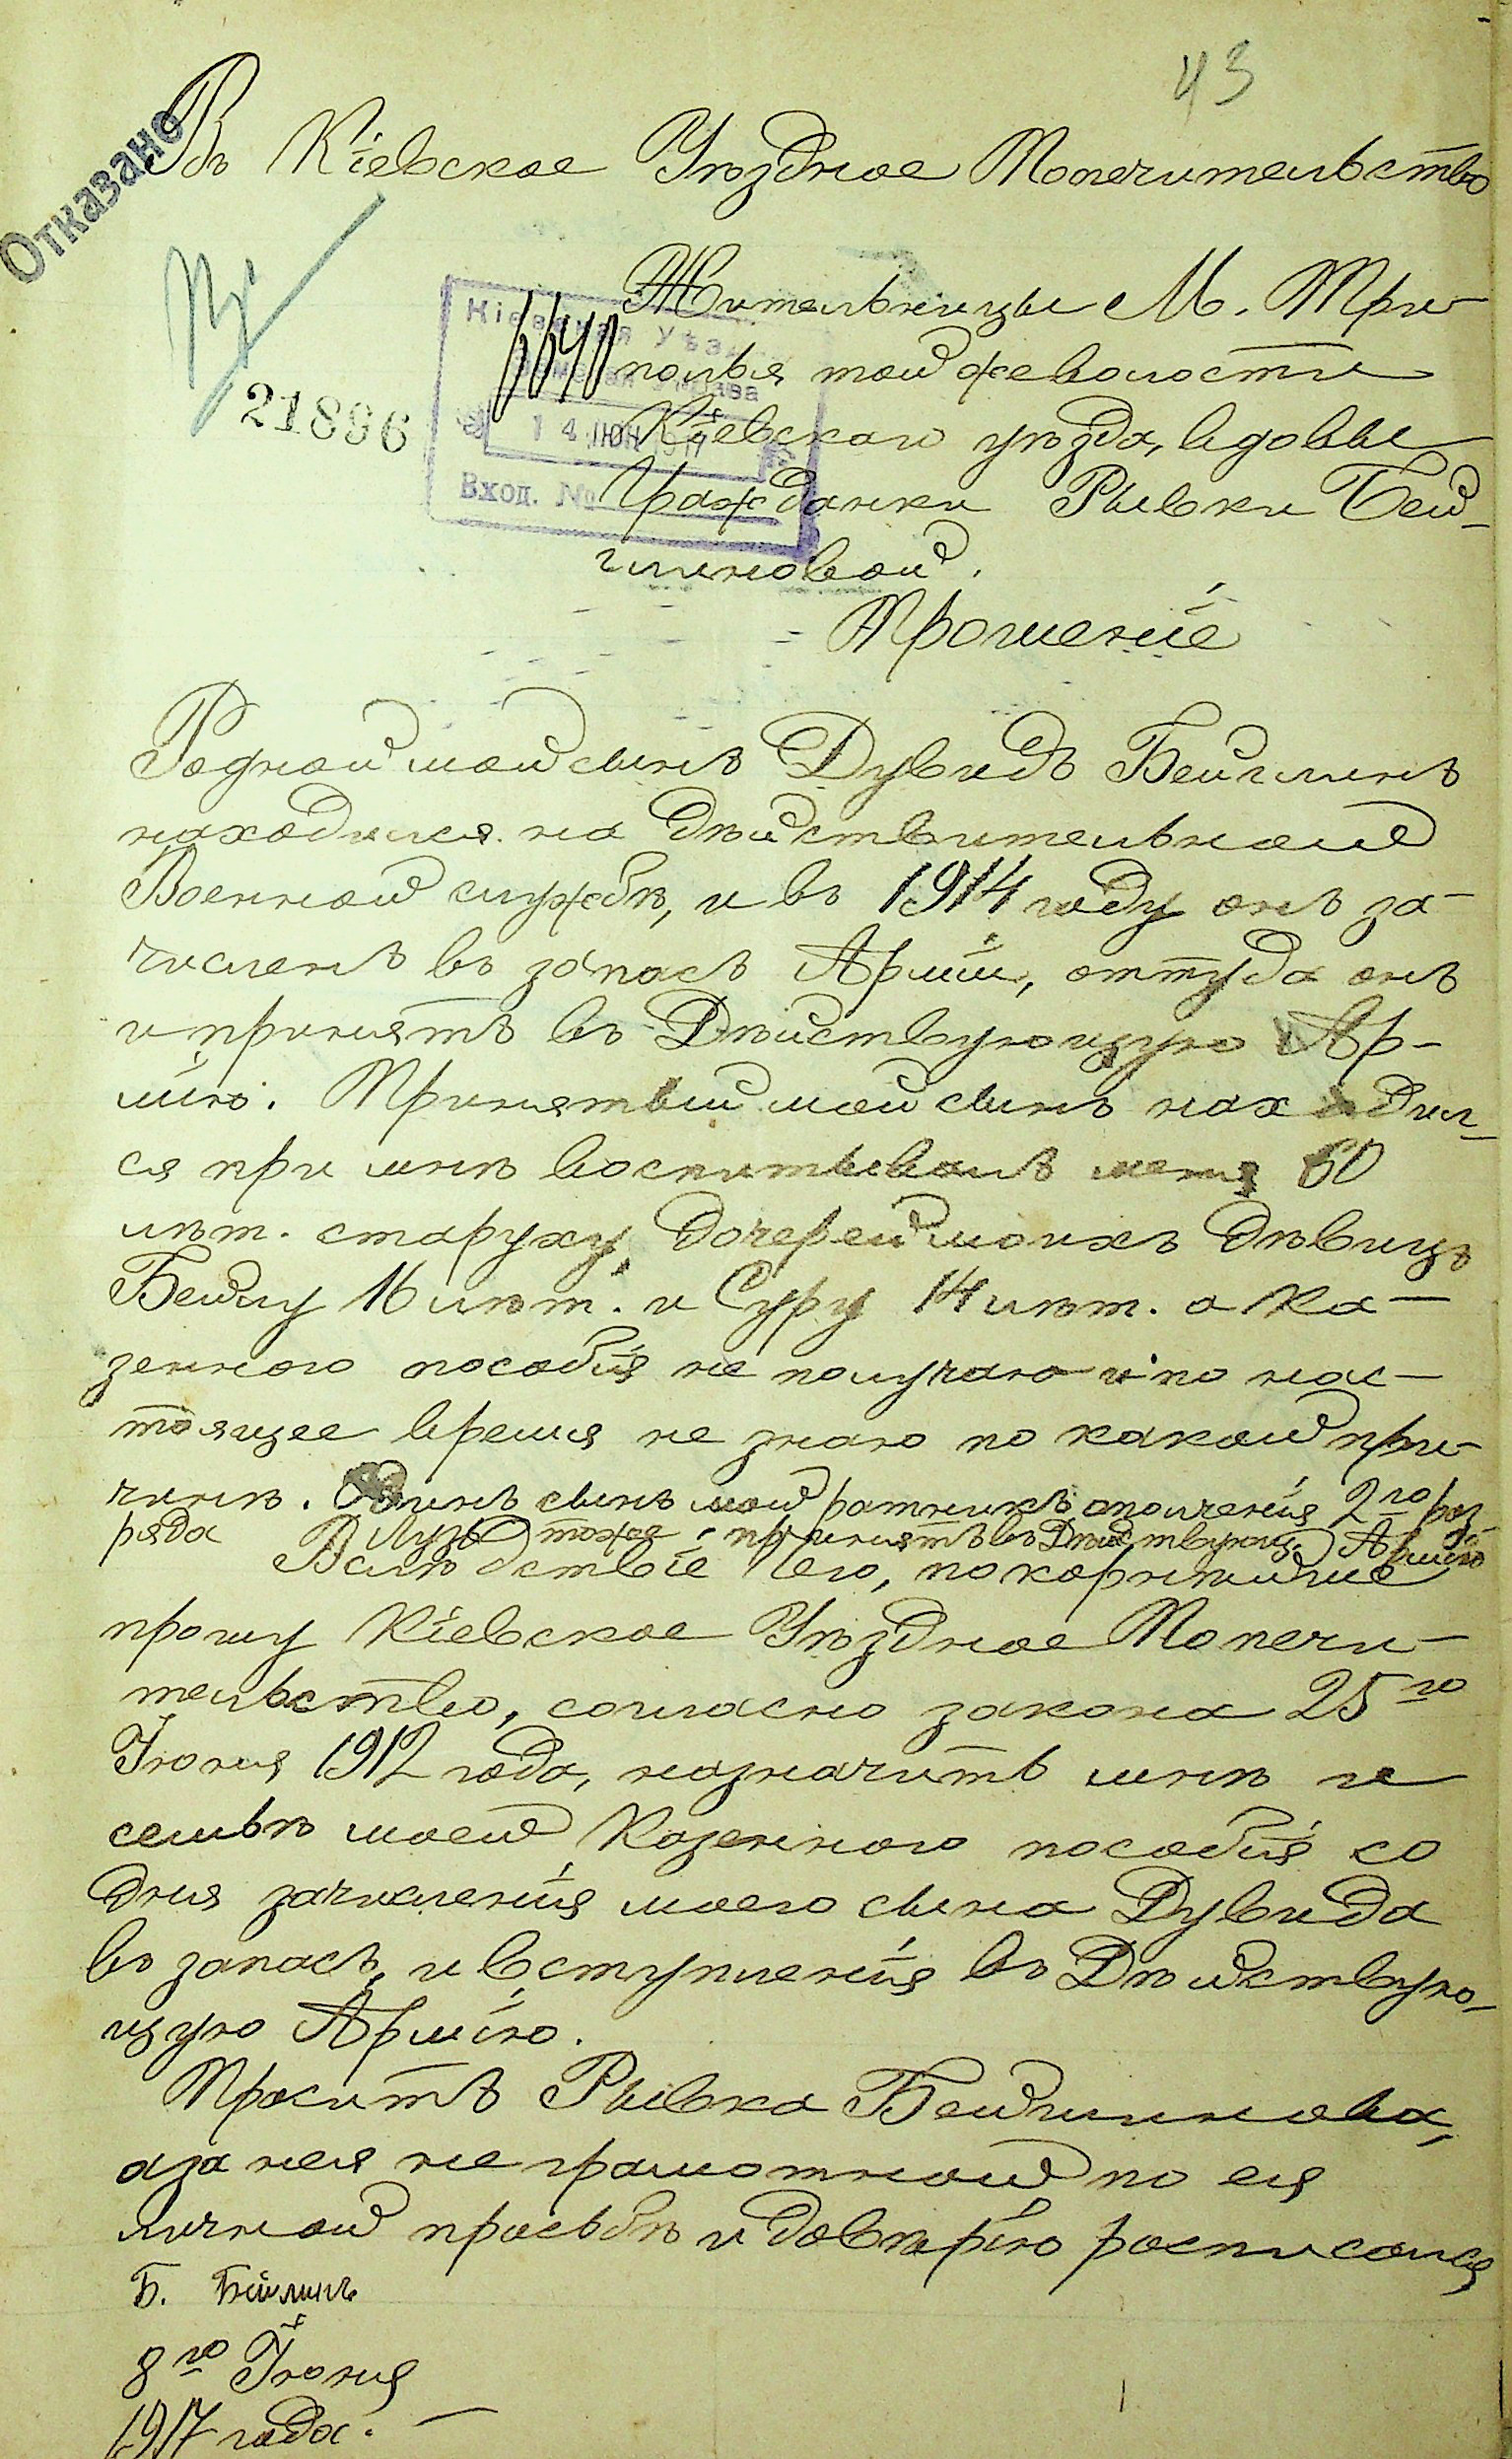 43
Отказано
Въ Кіевское Уѣздное Попечительство
Жительницы М. Три-
полья той же волости
Кіевскаго уѣзда, вдовы
Гражданки Рывки Бей-
глиновой.
6640
21896
Кіевская Уѣзд.
Земская Управа
14 ІЮН 1917
Вход. №
Прошеніе
Родной мой сынъ Дувидъ Бейглинъ
находился на Дѣйствительной
Военной службѣ, и въ 1914 году онъ за-
численъ въ запасъ Арміи, оттуда онъ
и принятъ въ Дѣйствующую Ар-
мію. Принятый мой сынъ находил-
ся при мнѣ воспитывалъ меня 60
лѣт. старуху, дочерей моихъ дѣвицъ
Бейлу 16 лѣт. и Суру 14 лѣт. а Ка-
зенного пособія не получаю и по нас-
тоящее время не знаю по какой при-
чинѣ. сынъ мой ратникъ ополченія 2го раз-
ряда тоже принятъ въ Дѣйствующ. Армію
Вслѣдствіе чего, покорнѣйше
прошу Кіевское Уѣздное Попечи-
тельство, согласно закона 25го
Іюня 1912 года, назначить мнѣ и
семьѣ моей Казенного пособія со
дня зачисленія моего сына Дувида
въ запасъ, и вступленія въ Дѣйствую-
щую Армію.
Проситъ Рывка Бейглинова,
а за нея неграмотной по ея
личной просьбѣ и довѣрію росписался
Б. Бейлинъ
8го Іюня
1917 года.